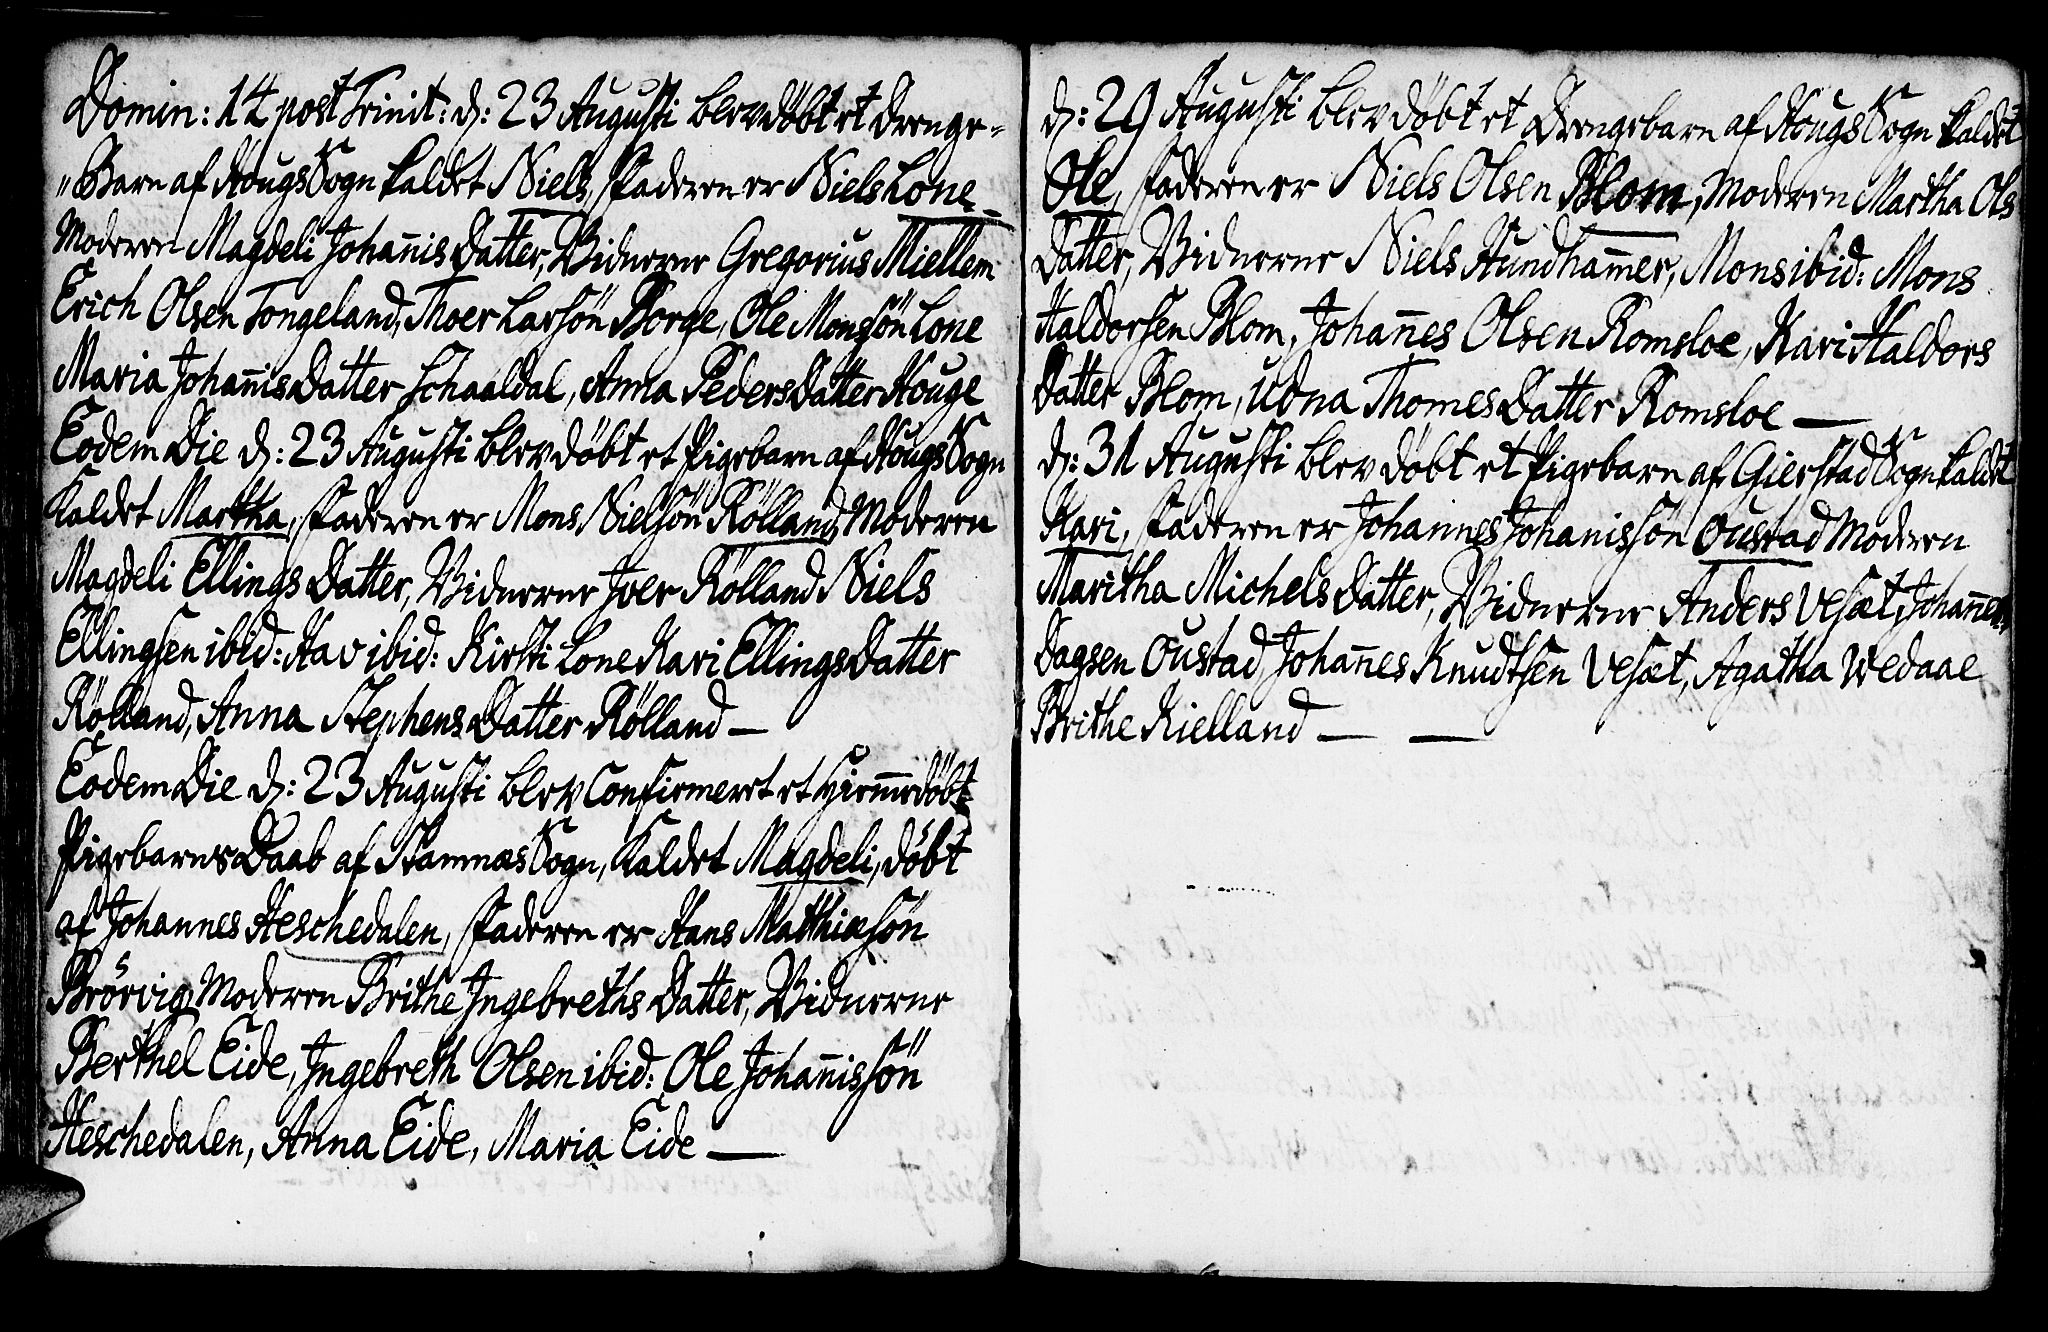 Domin: 14 post Trinit: d: 23 Augusti blev döbt et Drenge-
"Barn af Hougs Sogn kaldet Niels, Faderen er Niels Lone_
Moderen Magdeli Johanis Datter, Vidnerne Gregorius Miellem
Erich Olsen Tongeland, Thoer Larsön Borge, Ole Monsön Lone
Maria Johanis Datter Schaaldal, Anna Peders Datter Houge
Eodem Die d: 23 Augusti blev döbt et Pigebarn af Hougs Sogn
kaldet Martha, Faderen er Mons Nielsön Rölland, Moderen
Magdeli Ellings Datter, Vidnerne Iver Rölland Niels
Ellingsen ibid: Hav ibid: Kirsti Lone Kari Ellings Datter
Rölland, Anna Stephens Datter Rölland —
Eodem Die d: 23 Augusti blev Confirmeret et Hiemmedöbt
Pigebarns Daab af Stamnæs Sogn, kaldet Magdeli, döbt
af Johannes Heschedalen, Faderen er Hans Matthiæsön
Brörvig, Moderen Brithe Ingebreths Datter, Vidnerne
Berthel Eide, Ingebreth Olsen ibid: Ole Johanissön
Heschedalen, Anna Eide, Maria Eide —
d: 29 Augusti blev döbt et Drengebarn af Hougs Sogn kaldet
Ole, Faderen er Niels Olsen Blom, Moderen Martha Ols
Datter, Vidnerne Niels Hundhamer, Mons ibid: Mons
Haldorsen Blom, Johanes Olsen Romsloe, Kari Haldors
Datter Blom, Udna Thomes Datter Romsloe —
d: 31 Augusti blev döbt et Pigebarn af Gierstad Sogn kaldet
Kari, Faderen er Johannes Johanissön Oustad Moderen
Maritha Michels Datter, Vidnerne Anders Vesæt, Johanes
Dagsen Oustad, Johanes Knudtsen Vesæt, Agatha Wedaae
Brithe Kielland — —